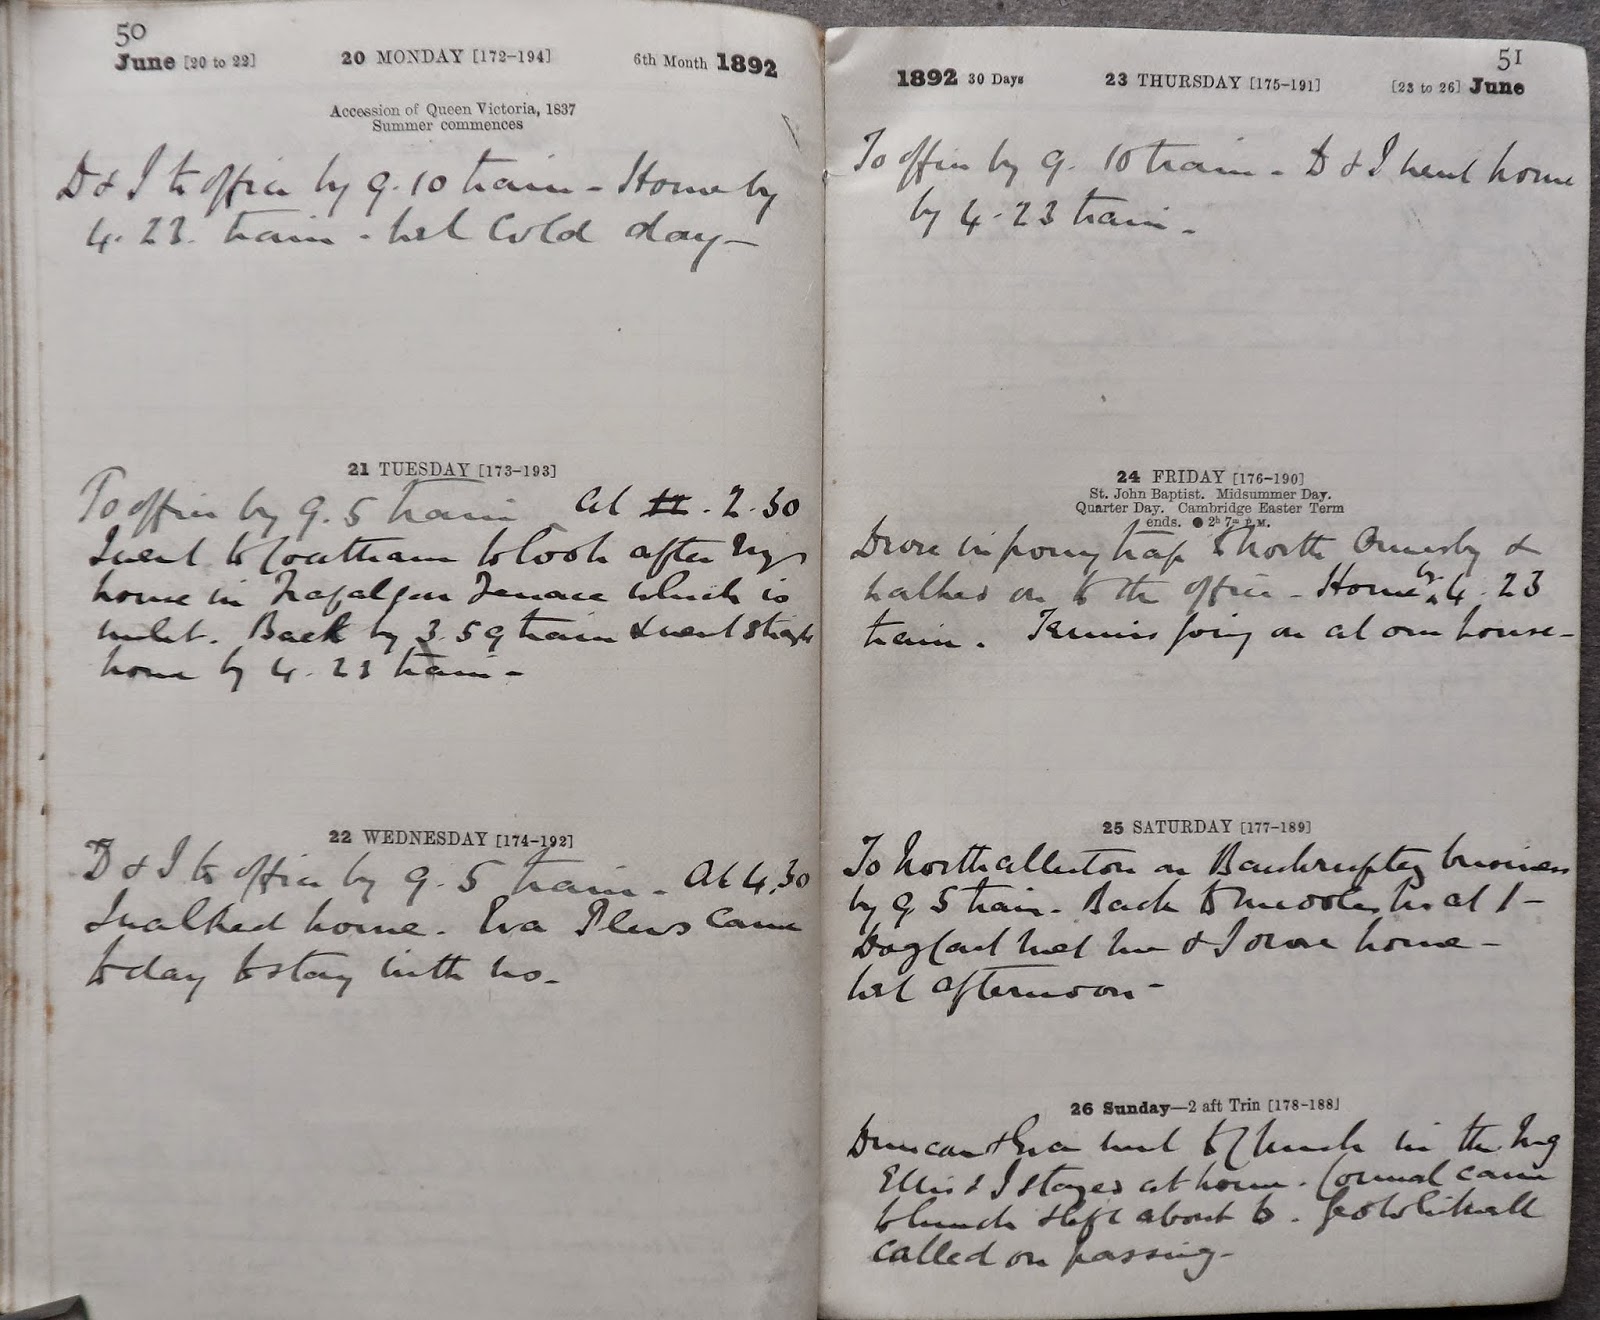 50
June [20 to 22] 20 MONDAY [172-194] 6th Month 1892
Accession of Queen Victoria, 1837
Summer commences
D & I to office by 9.10 train - Home by
4.23. train - wet cold day -
21 TUESDAY [173-193]
To office by 9.5 train At 2.30
I went to Coatham to look after my
house in Trafalgar Terrace which is
unlet. Back by 3.59 train & went straight
home by 4.23 train -
22 WEDNESDAY [174-192]
D & I to office by 9.5 train - At 4.30
I walked home. Eva Plews came
today to stay with us.
51
1892 30 Days 23 THURSDAY [175-191] [23 to 26] June
To office by 9.10 train - D & I went home
by 4.23 train -
24 FRIDAY [176-190]
St. John Baptist. Midsummer Day.
Quarter Day. Cambridge Easter Term
ends. ● 2h 7m P.M.
Drove in pony trap to North Ormesby &
walked on to the office - Home by 4.23
train. Tennis going on at our house -
25 SATURDAY [177-189]
To Northallerton on Bankruptcy business
by 9.5 train - Back to at 1 -
Dog Cart met me & I drove home -
wet afternoon -
26 Sunday—2 aft Trin [178-188]
Duncan & Eva went to Church in the mg
Ellis & I stayed at home. came
to lunch & left about 6. Geo
called on passing -